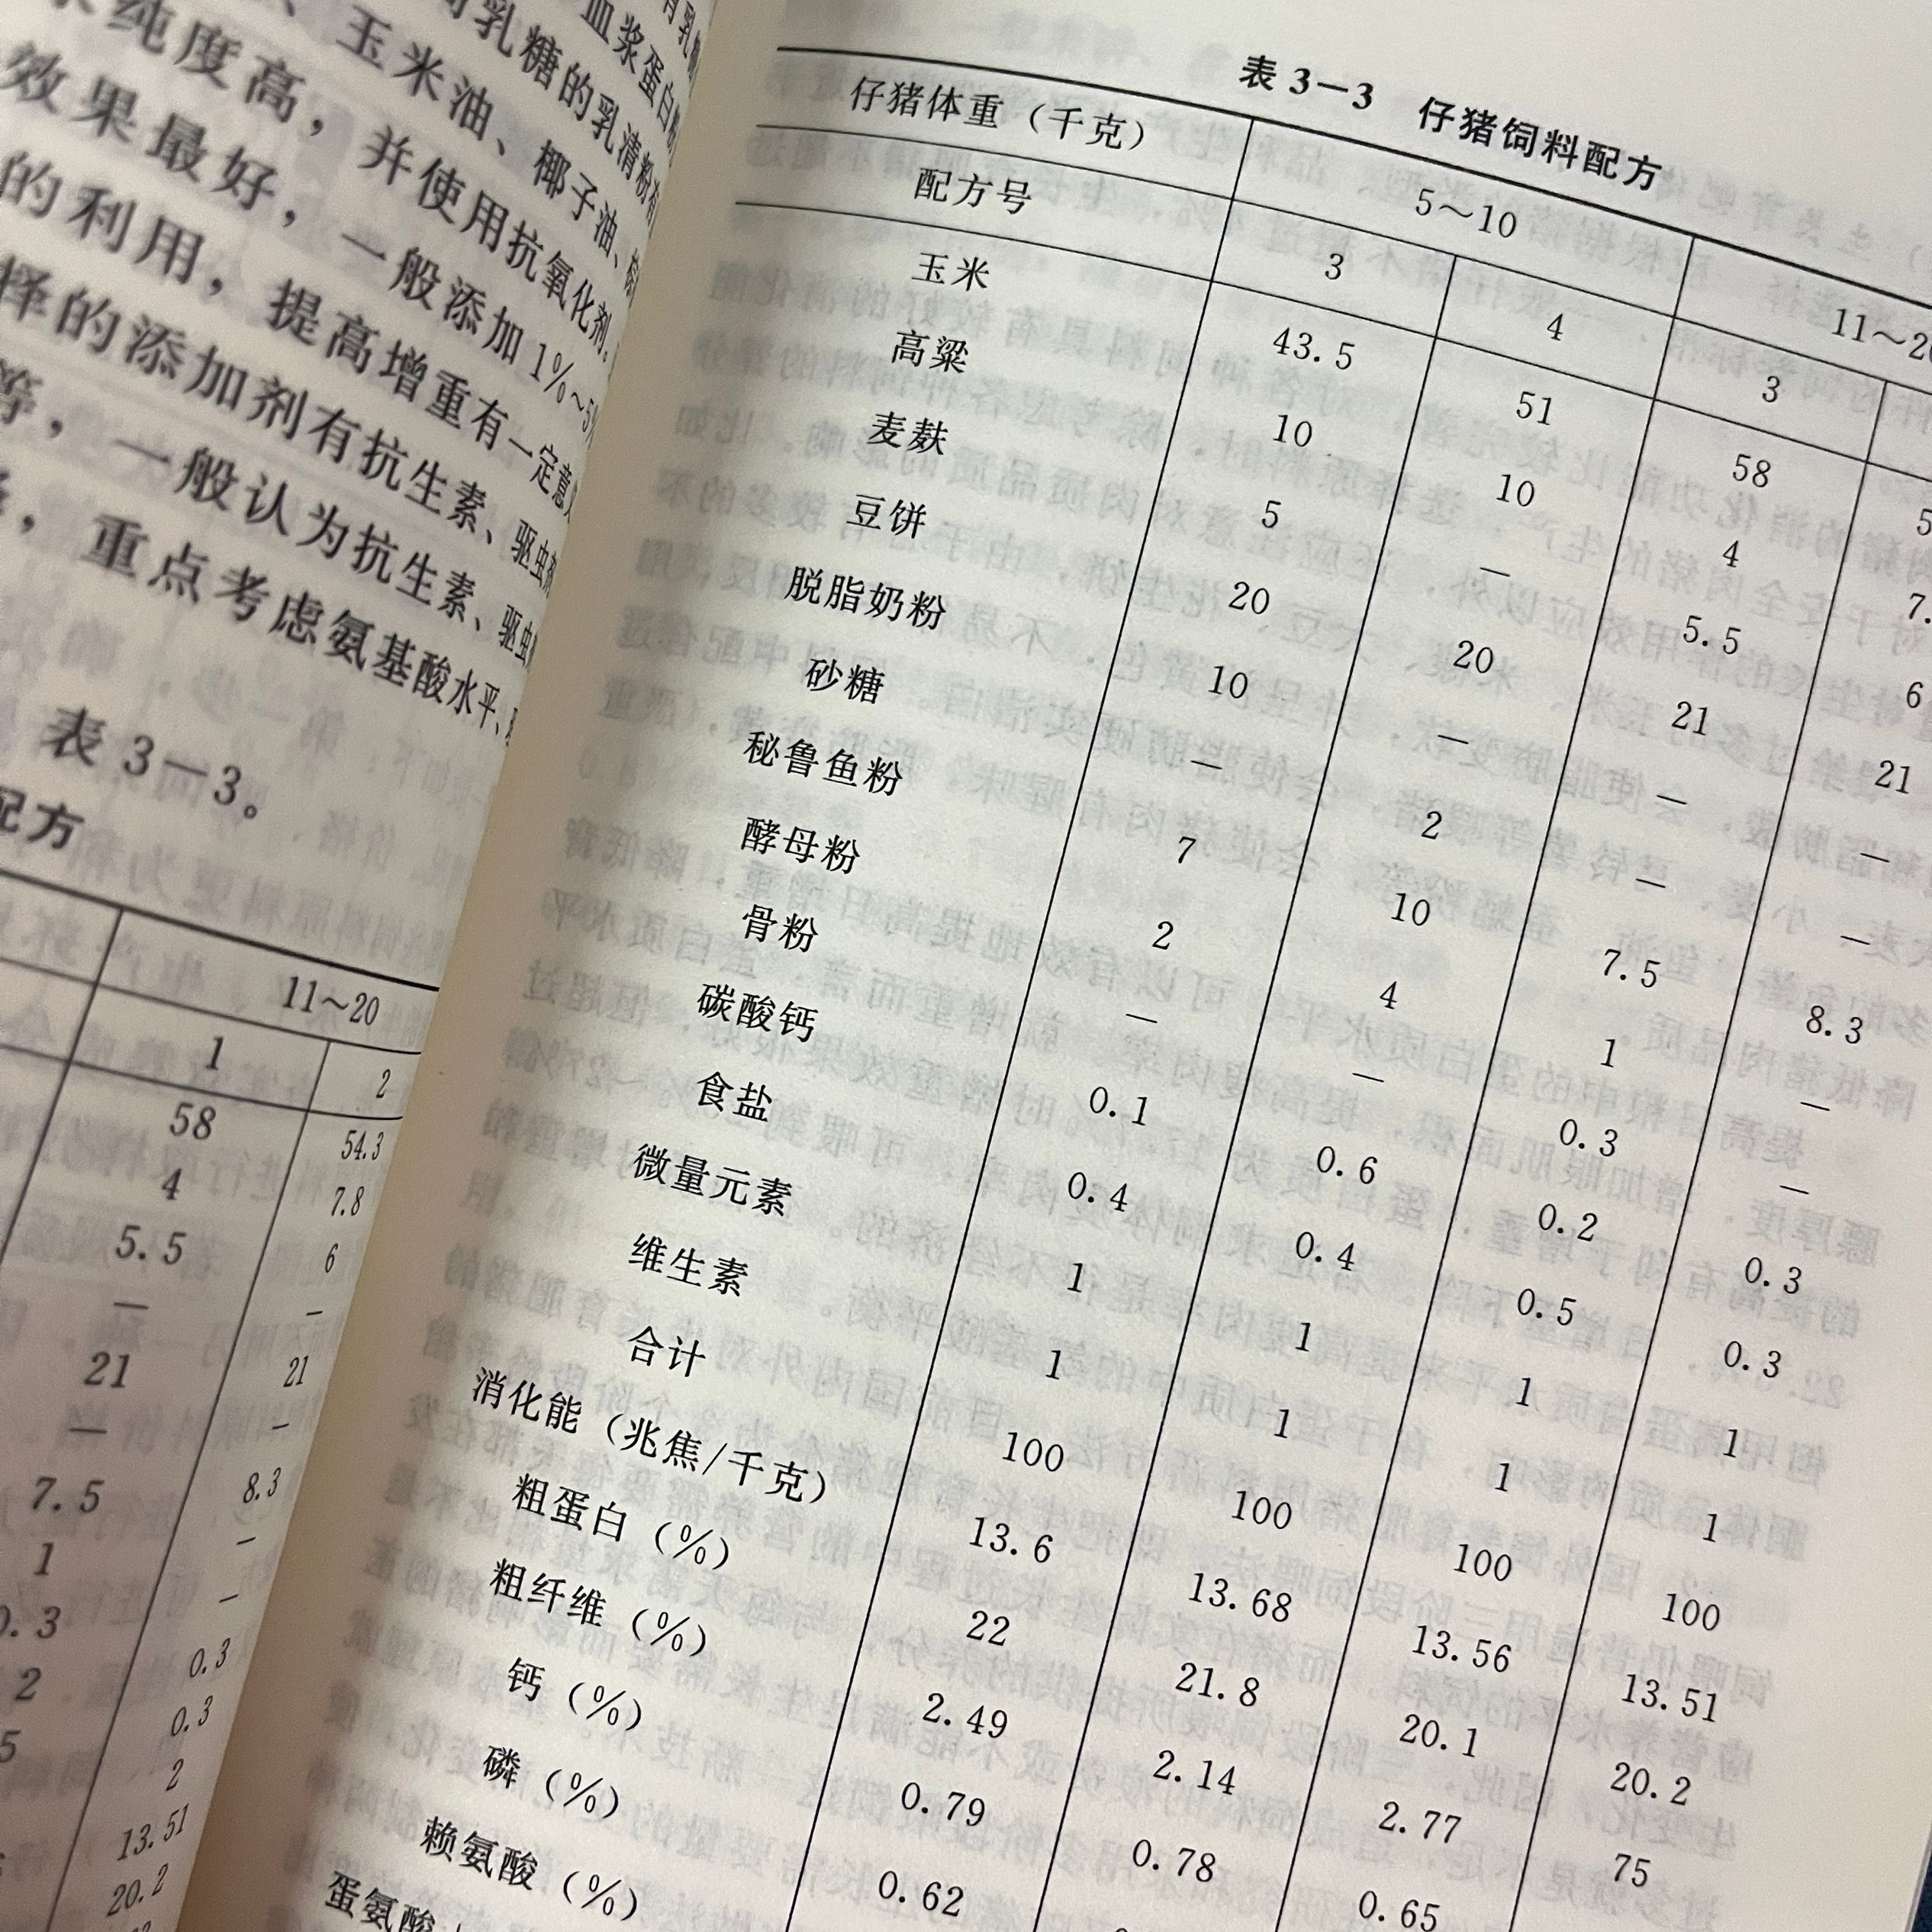 血浆蛋白粉
乳糖的乳清粉
、玉米油、椰子油、
纯度高，并使用抗氧化剂。
效果最好，一般添加1%~5%
的利用，提高增重有一定意
择的添加剂有抗生素、驱虫剂
等，一般认为抗生素、驱虫
，重点考虑氨基酸水平、
表3—3。
配方
11～20
1 2
58 54.3
4 7.8
5.5 6
— —
21 21
— —
7.5 8.3
1 —
0.3 —
2 0.3
5 0.3
2
13.51
20.2
表3—3 仔猪饲料配方
仔猪体重（千克） 5～10 11～20
配方号 3 4 3
玉米 43.5 51 58
高粱 10 10 4
麦麸 5 — 5.5
豆饼 20 20 21
脱脂奶粉 10 — —
砂糖 — 2 —
秘鲁鱼粉 7 10 7.5 8.3
酵母粉 2 4 1 —
骨粉 — — 0.3 —
碳酸钙 0.1 0.6 0.2 0.3
食盐 0.4 0.4 0.5 0.3
微量元素 1 1 1 1
维生素 1 1 1 1
合计 100 100 100 100
消化能（兆焦/千克） 13.6 13.68 13.56 13.51
粗蛋白（%） 22 21.8 20.1 20.2
粗纤维（%） 2.49 2.14 2.77 75
钙（%） 0.79 0.78 0.65
磷（%） 0.62
赖氨酸（%）
蛋氨酸